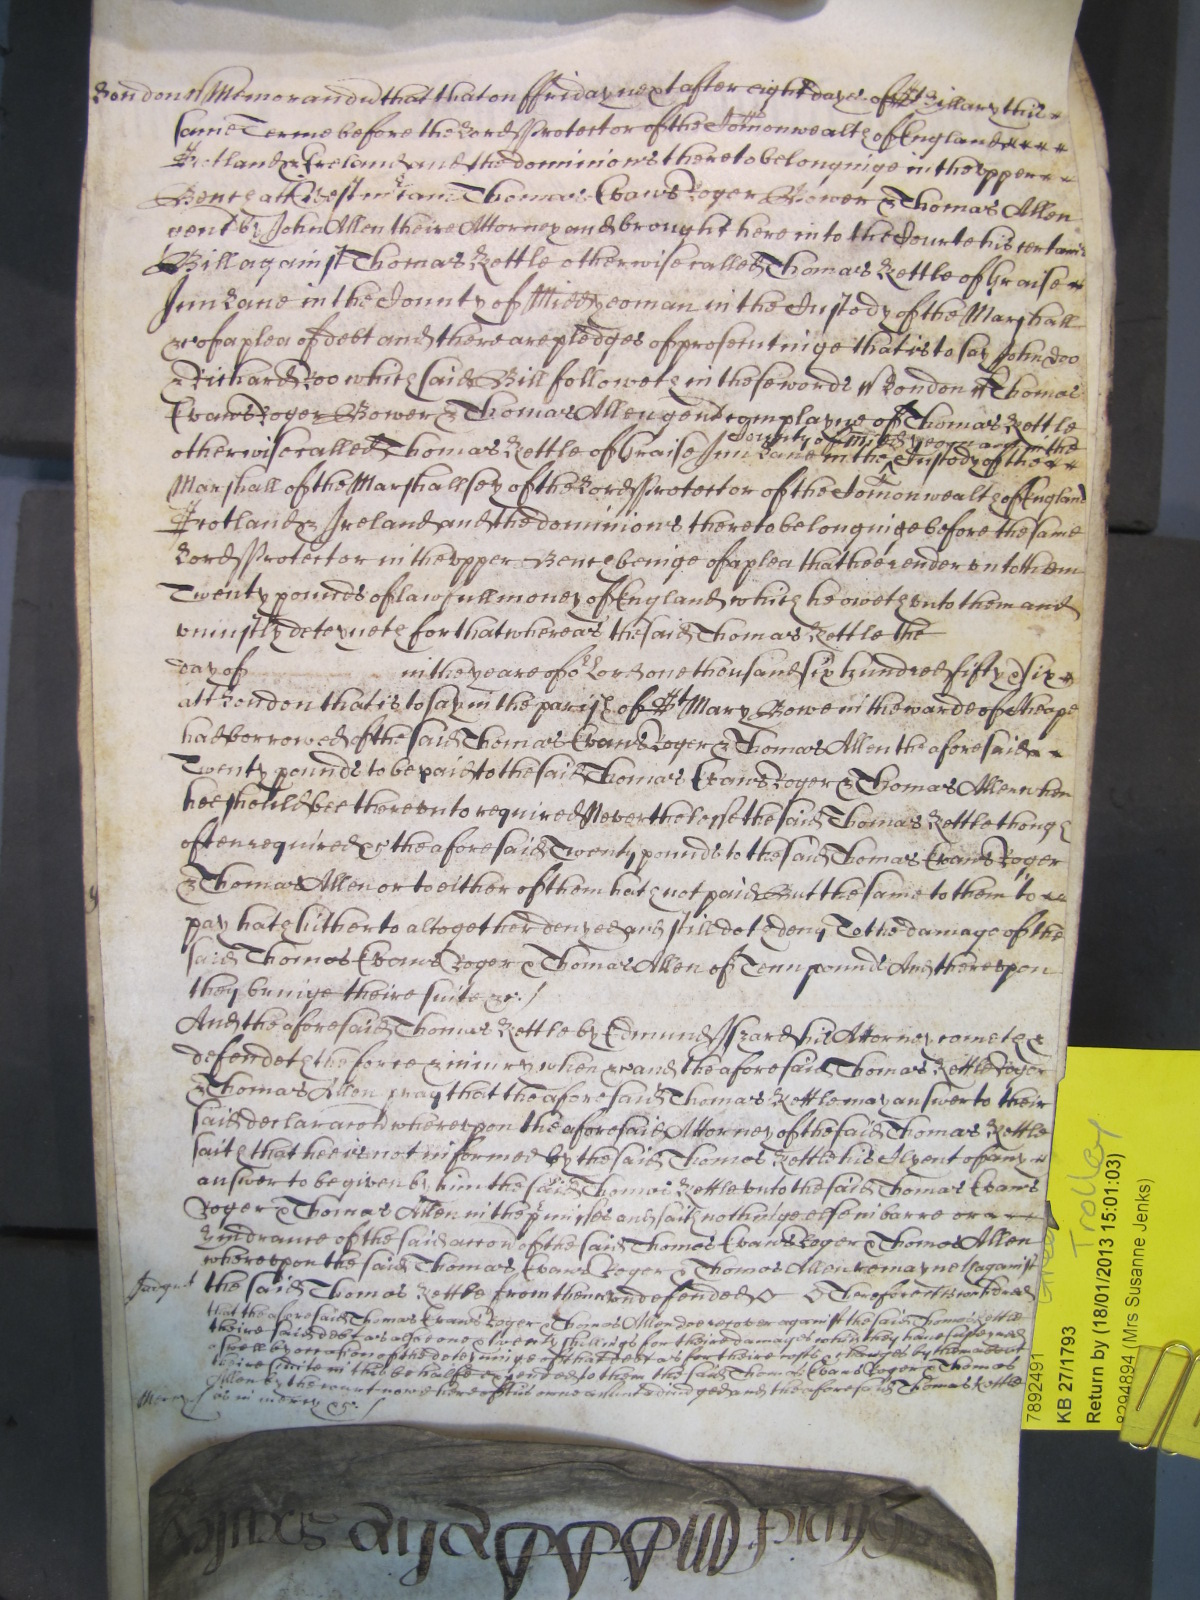 London ss Memorandu that that on Friday next after eight dayes of St Hillary this
same Terme before the Lord Protector of the Comonwealth of England
Scotland & Ireland and the dominions thereto belonginge in the vpper
Bench att Westmr came Thomas Evans Roger Bower & Thomas Allen
gent by John Allen theire Attorney and brought here into the Court his certaine
Bill against Thomas Kettle otherwise called Thomas Kettle of Graise
Inn Lane in the County of Midd yeoman in the Custody of the Marshall
&c of a plea of debt and there are pledges of prosecutinge that is to say John Doo
& Richard Roo which said Bill followeth in these words ss London ss Thomas
Evans Roger Bower & Thomas Allen gent complayne of Thomas Kettle
County of Midd yeoman in the
otherwise called Thomas Kettle of Graise Inn Lane in the Custody of the
Marshall of the Marshallsey of the Lord Protector of the Comonwealth of England
Scotland & Ireland and the dominions thereto belonginge before the same
Lord Protector in the vpper Bench beinge of a plea that hee render vnto them
Twenty pounds of lawfull money of England which he oweth vnto them and
vniustly deteyneth for that whereas the said Thomas Kettle the
day of in the yeare of or Lord one thousand six hundred fifty & six
att London that is to say in the parish of St Mary Bowe in the warde of Cheape
had borrowed of the said Thomas Evans Roger & Thomas Allen the aforesaid
Twenty pounds to be paid to the said Thomas Evans Roger & Thomas Allen when
hee should bee therevnto required Neverthelesse the said Thomas Kettle though
often required &c the aforesaid Twenty pounds to the said Thomas Evans Roger
& Thomas Allen or to either of them hath not paid But the same to them to
pay hath hitherto altogether denyed and still doth deny To the damage of the
said Thomas Evans Roger & Thomas Allen of Tenn pounds And therevpon
they bringe theire suite &c /
And the aforesaid Thomas Kettle by Edmund Izard his Attorney cometh &
defendeth the force & iniury when &c and the aforesaid Thomas Kettle Roger
& Thomas Allen pray that the aforesaid Thomas Kettle may answer to their
said declaracon wherevpon the aforesaid Attorney of the said Thomas Kettle
saith that hee is not informed by the said Thomas Kettle his Clyent of any
answer to be given by him the said Thomas Kettle vnto the said Thomas Evans
Roger & Thomas Allen in the pmises and saith nothinge else in barre or
hindrance of the said accon of the said Thomas Evans Roger & Thomas Allen
wherevpon the said Thomas Evans Roger & Thomas Allen remayneth against
Judgmt the said Thomas Kettle from them vndefended Therefore it is considered
that the aforesaid Thomas Evans Roger & Thomas Allen doe recover against the said Thomas Kettle
theire said debt as alsoe one & twenty shillings for their damages which they have susteyned
aswell by occasion of the deteyninge of that debt as for theire costs & charges by them about
theire suite in this behalfe expended to them the said Thomas Evans Roger & Thomas
Allen by the court nowe here of his owne assent adiudged and the aforesaid Thomas Kettle
Mercy / is in mercy &c. /
78924491
KB 27/1793
Return by (18/01/2013 15:01:03)
8294894 (Mrs Susanne Jenks)
Trolley